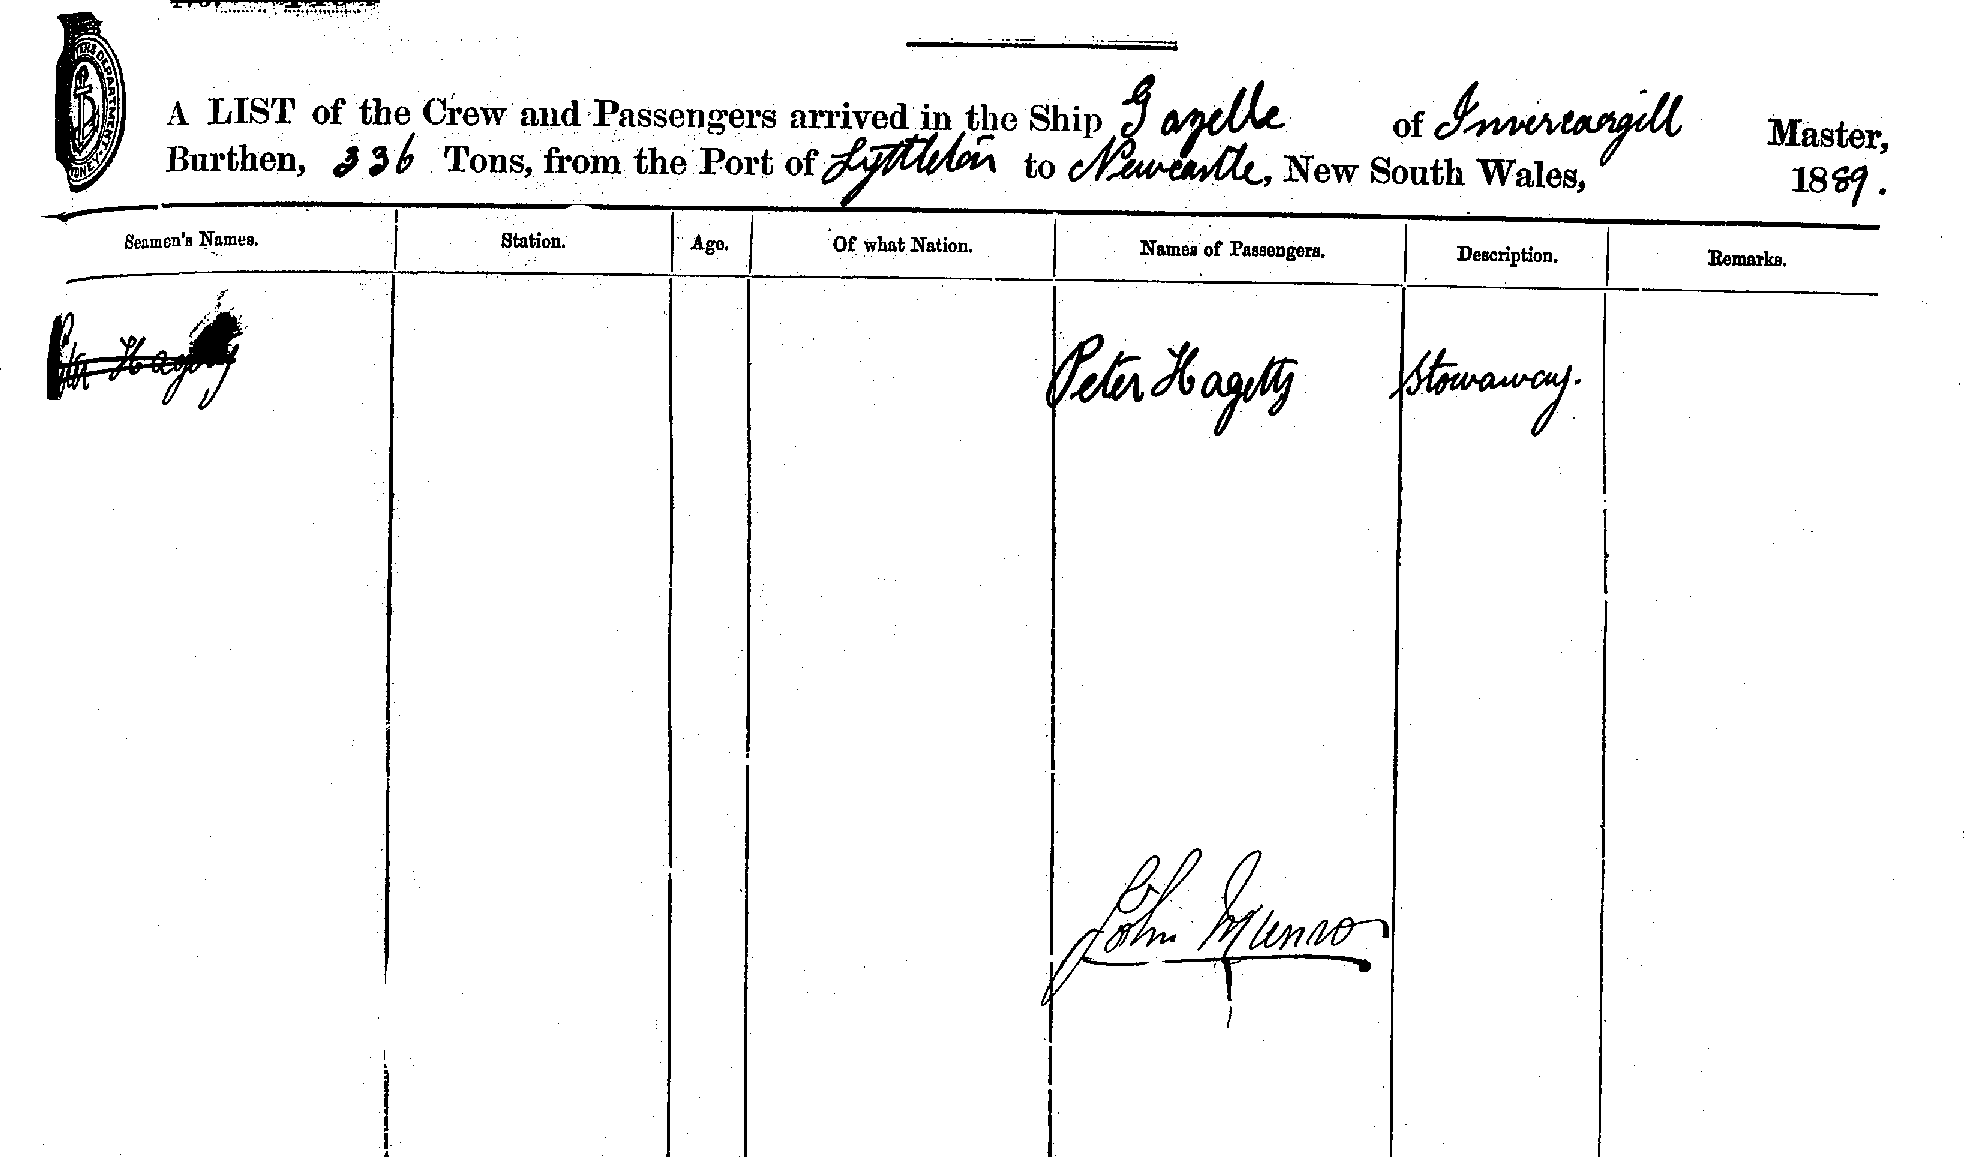 A LIST of the Crew and Passengers arrived in the Ship Gazelle of Invercargill Master,
Burthen, 336 Tons, from the Port of Lyttleton to Newcastle, New South Wales, 1889.
Seamen's Names. Station. Age. Of what Nation. Names of Passengers. Description. Remarks.
Peter Hagetty Peter Hagetty Stowaway.
John Munro